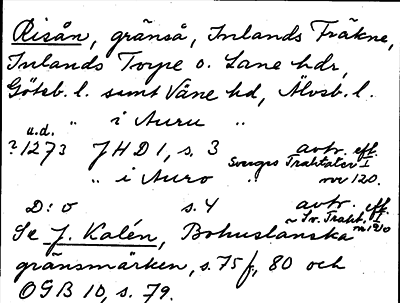 Risån, gränså, Inlands Fräkne,
Inlands Torpe o. Lane hdr,
Göteb. l. samt Väne hd, Älvsb. l.
" i Auru "
u.d.
?1273 JHD 1, s. 3 avtr. eff.
Sveriges Traktater I
" i Auro " nr 120.
D:o s. 4 avtr. eff.
~ Sv. Trakt. I
Se J. Kalén, Bohuslänska nr 120
gränsmärken, s. 75 f, 80 och
OGB 10, s. 79.